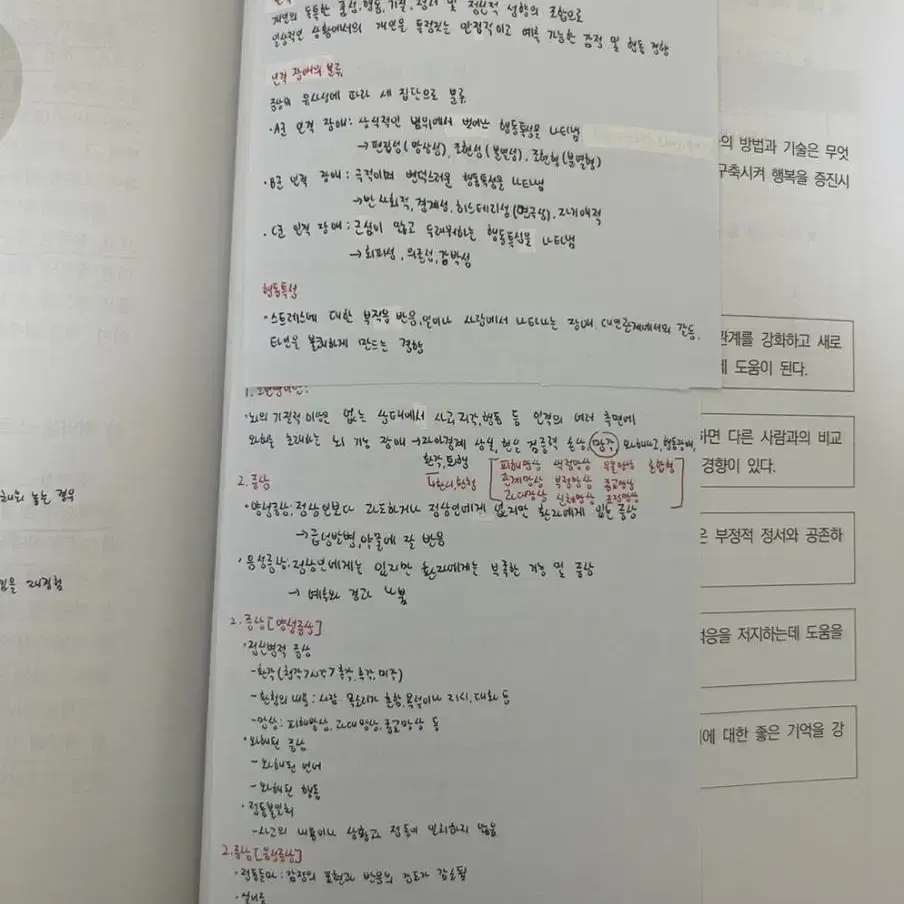 개인의 독특한 품성, 행동, 기질, 정서 및 정신적 성향의 조합으로
일상적인 상황에서의 개인을 특징짓는 안정적이고 예측 가능한 감정 및 행동 경향
인격 장애의 분류
증상의 유사성에 따라 세 집단으로 분류
·A군 인격 장애: 상식적인 범위에서 벗어난 행동특성을 나타냄
→편집성(망상성), 조현성(분열성), 조현형(분열형)
·B군 인격 장애: 극적이며 변덕스러운 행동특성을 나타냄
→반사회적, 경계성, 히스테리성(연극성), 자기애적
·C군 인격 장애: 근심이 많고 두려워하는 행동특성을 나타냄
→회피성, 의존성, 강박성
행동특성
·스트레스에 대한 부적응 반응, 일이나 사랑에서 나타나는 장애, 대인관계에서의 갈등,
타인을 불쾌하게 만드는 경향
·뇌의 기질적 이상은 없는 상태에서 사고, 지각, 행동 등 인격의 여러 측면에
와해를 초래하는 뇌 기능 장애→자아경계 상실, 현실 검증력 손상, 망상, 와해사고, 행동장애,
환각, 퇴행
↳환시, 환청
피해망상 색정망상 우울망상 혼합형
관계망상 부정망상 종교망상
과대망상 신체망상 조정망상
2. 증상
·양성증상: 정상인보다 과도하거나 정상인에게 없지만 환자에게 있는 증상
→급성발병, 약물에 잘 반응
·음성증상: 정상인에게는 있지만 환자에게는 부족한 기능 및 증상
→ 예후와 경과 나쁨
2. 증상[양성증상]
·정신병적 증상
-환각(청각>시각>후각, 촉각, 미주)
-환청의 내용: 사람 목소리가 흔함, 욕설이나 지시, 대화 등
-망상: 피해망상, 과대망상, 종교망상 등
·와해된 증상
-와해된 언어
-와해된 행동
·정동불일치
-사고의 내용이나 상황과 정동이 일치하지 않음
2. 증상[음성증상]
·정동둔마: 감정의 표현과 반응의 강도가 감소됨
놓는 경우
재경험
의 방법과 기술은 무엇
구축시켜 행복을 증진시
관계를 강화하고 새로
도움이 된다.
하면 다른 사람과의 비교
경향이 있다.
은 부정적 정서와 공존하
적응을 저지하는데 도움을
에 대한 좋은 기억을 강